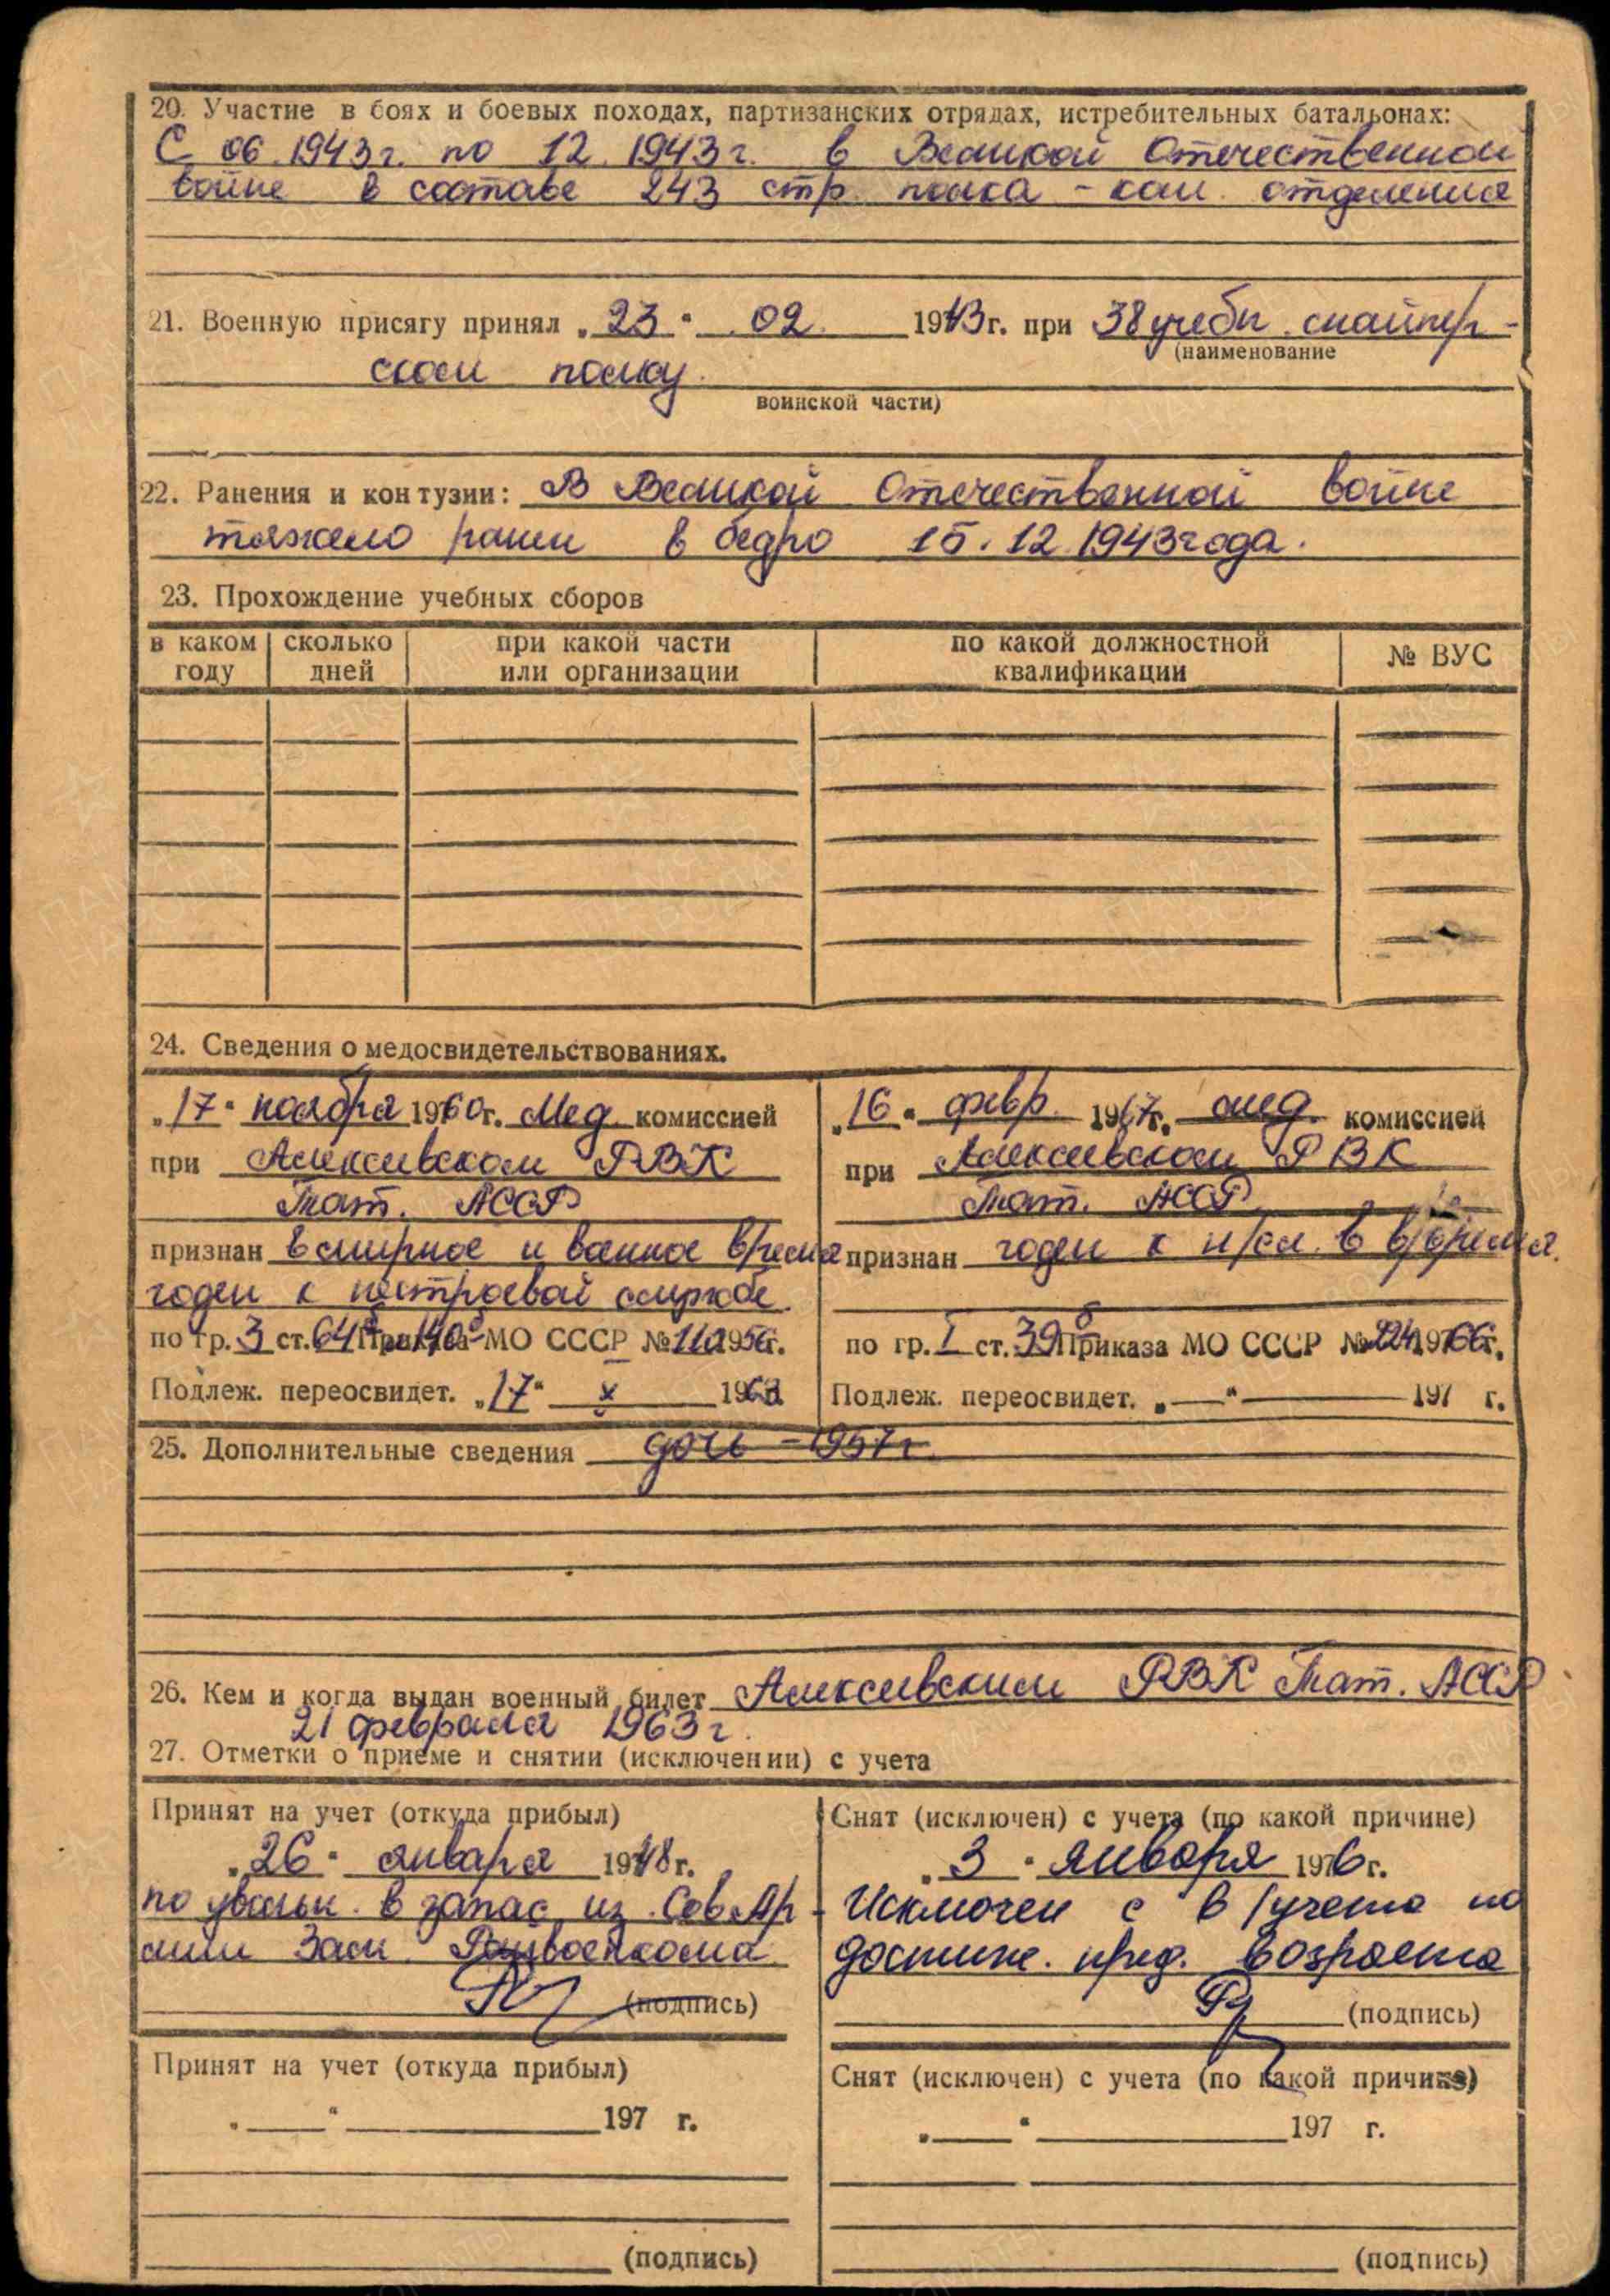 20. Участие в боях и боевых походах, партизанских отрядах, истребительных батальонах:
С 06.1943г. по 12.1943г. в Великой Отечественной
войне в составе 243 стр. полка - ком. отделения
21. Военную присягу принял „23“ 02. 1943г. при 38 учебн. снайпер-
(наименование
ском полку.
воинской части)
22. Ранения и контузии: В Великой Отечественной войне
тяжело ранен в бедро 15.12.1943года.
23. Прохождение учебных сборов
в каком году | сколько дней | при какой части или организации | по какой должностной квалификации | № ВУС
24. Сведения о медосвидетельствованиях.
„17“ ноября 1960г. Мед. комиссией
при Алексеевском РВК
Тат. АССР
признан в мирное и военное время
годен к нестроевой службе.
по гр. 3 ст. 64 Приказа МО СССР № 1956г.
Подлеж. переосвидет. „17“ X 196
„16“ февр. 1967г. мед. комиссией
при Алексеевском РВК
Тат. АССР
признан годен к н/сл. в в/время.
по гр. I ст. 39б Приказа МО СССР № 224 1966г.
Подлеж. переосвидет. „ “ 197 г.
25. Дополнительные сведения дочь - 1957г.
26. Кем и когда выдан военный билет Алексеевским РВК Тат. АССР
21 февраля 1963г.
27. Отметки о приеме и снятии (исключении) с учета
Принят на учет (откуда прибыл)
„26“ января 1948г.
по увольн. в запас из Сов.Ар-
мии Зам. Райвоенкома
(подпись)
Снят (исключен) с учета (по какой причине)
„3“ января 1976г.
Исключен с в/учета по
достиж. пред. возраста
(подпись)
Принят на учет (откуда прибыл)
„ “ 197 г.
(подпись)
Снят (исключен) с учета (по какой причине)
„ “ 197 г.
(подпись)